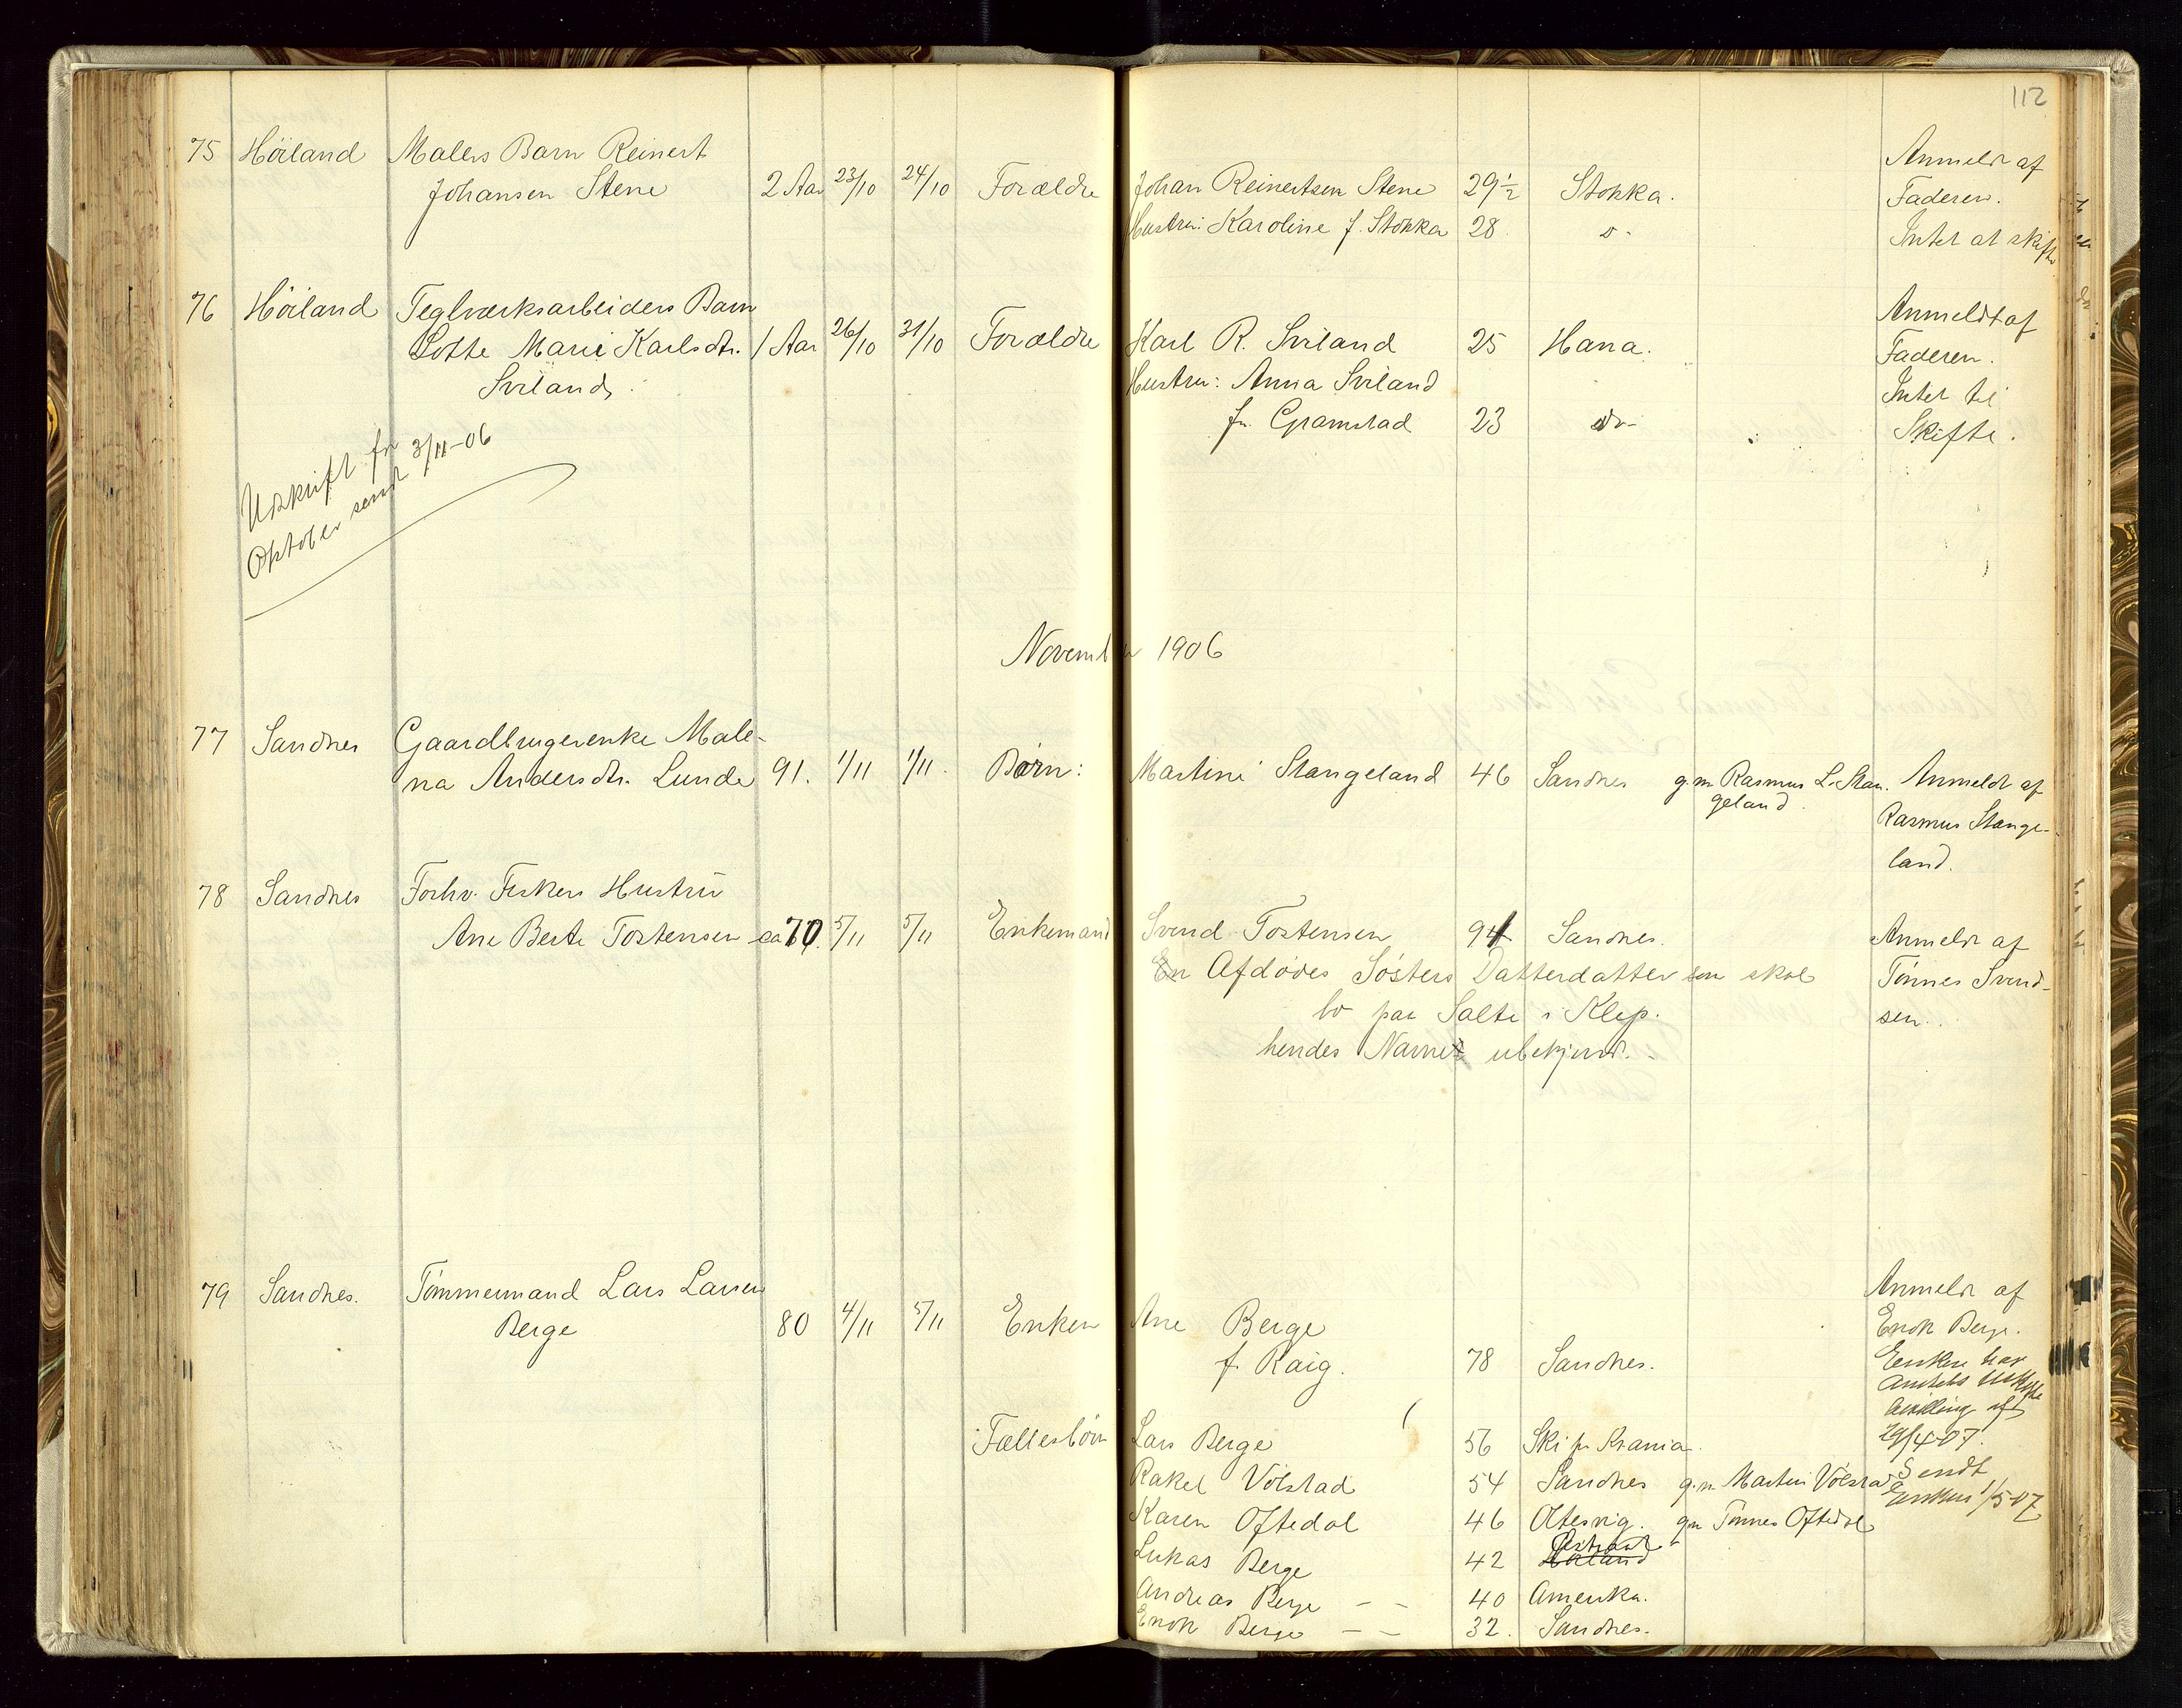 112
75 Höiland Malers Barn Reinert
Johansen Stene 2 Aar 23/10 24/10 Forældre Johan Reinertsen Stene 29½ Stokka. Anmeldt af
Hustru: Karoline f. Stokka 28 Faderen.
Intet at skifte
76 Höiland Teglværksarbeiders Barn
Lotte Marie Karlsdtr. 1 Aar 26/10 31/10 Forældre Karl R. Sviland 25 Hana. Anmeldt af
Sviland. Hustru: Anna Sviland Faderen.
f. Gramstad 23 do- Intet til
Skifte.
Udskrift for
Oktober sendt 3/11-06
November 1906
77 Sandnes Gaardbrugerenke Male-
na Andersdtr. Lunde 91. 1/11 1/11. Børn: Martine Stangeland 46 Sandnes g.m. Rasmus L. Stan- Anmeldt af
geland. Rasmus Stange-
land.
78 Sandnes Forhv. Fiskers Hustru
Ane Berte Tostensen ca 70. 5/11 5/11 Enkemand Svend Tostensen 91 Sandnes. Anmeldt af
En Afdødes Søsters Datterdatter som skal Tönnes Svend-
bo paa Salte i Klep. sen.
hendes Navn ubekjendt.
79 Sandnes. Tömmermand Lars Larsen
Berge 80 4/11 5/11 Enken Ane Berge Anmeldt af
f. Raig. 78 Sandnes. Enok Berge.
Enken har
Amtets
af
29/4-07.
Sendt
Enken 1/5-07
Fællesbörn Lars Berge 56 Ski pr Krania.
Rakel Völstad 54 Sandnes g.m. Martin Völstad
Karen Oftedal 46 Oltesvig. gm Tönnes Oftedal
Lukas Berge 42 Höiland
Andreas Berge - - 40 Amerika.
Enok Berge - - 32. Sandnes.